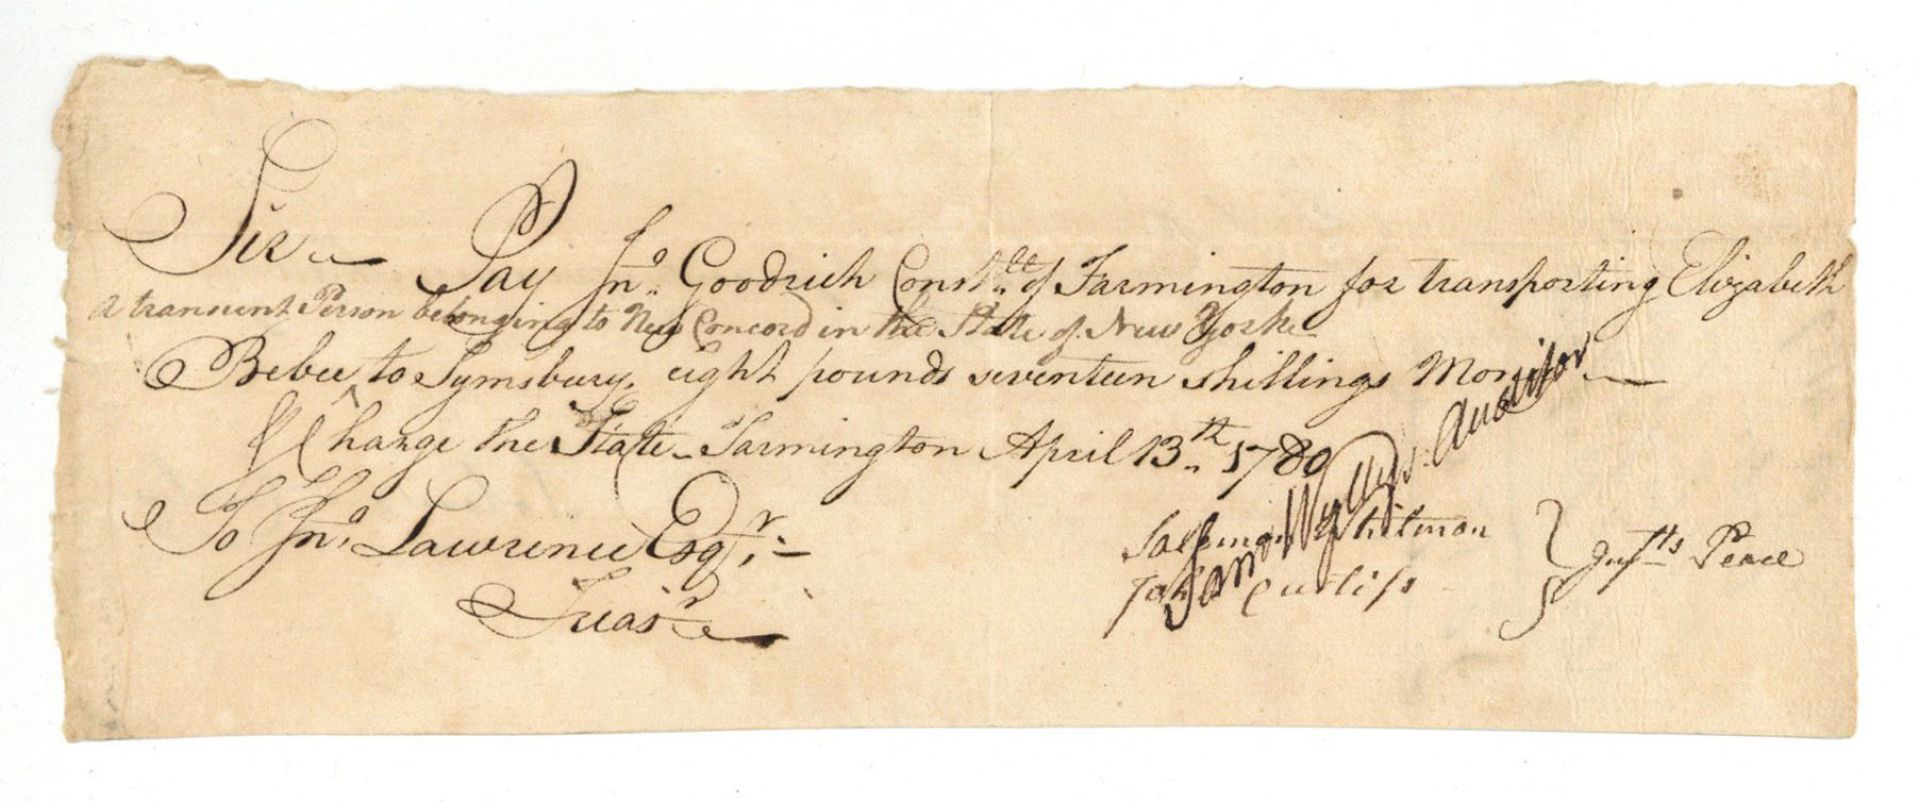 Sir Pay Jno. Goodrich Constle. of Farmington for transporting Elizabeth
a transient Person belonging to New Concord in the State of New York
Bebee ^ to Symsbury, eight pounds seventeen shillings Mony
& Charge the State - Farmington April 13th. 1780
To Jno. Lawrence Esqr.
Treasr
Solomon Whitman
Curtiss
Justs Peace
Saml Wyllys Auditor